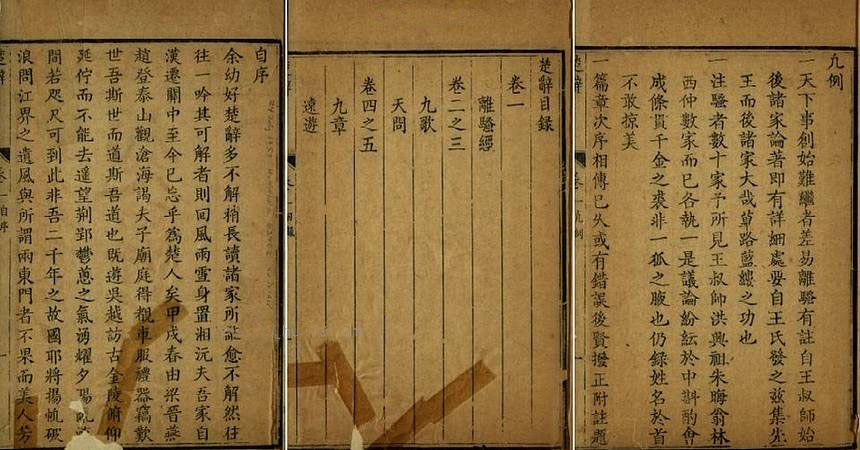 自序
余幼好楚辭多不解稍長讀諸家所註愈不解然往
往一吟其可解者則回風雨雪身置湘沅夫吾家自
漢遷關中至今已忘乎為楚人矣甲戌春由梁晉燕
趙登泰山觀滄海謁夫子廟庭得覩車服禮器竊歎
世吾斯世而道斯吾道也既遊吳越訪古金陵俯仰
延佇而不能去遥望荆郢鬱蔥之氣湧耀夕陽
間若咫尺可到此非吾二千年之故國耶將揚帆破
浪問江界之遺風與所謂兩東門者不果而美人芳
楚辭 卷一 自序
楚辭目錄
卷一
離騷經
卷二之三
九歌
天問
卷四之五
九章
遠遊
卷一 目錄
凡例
一天下事創始難繼者差易離騷有註自王叔師始
後諸家論著即有詳細處要自王氏發之兹集先
王而後諸家大哉蓽路藍縷之功也
一注騷者數十家予所見王叔師洪興祖朱晦翁林
西仲數家而已各執一是議論紛紜於中斟酌會
成條貫千金之裘非一狐之腋也仍錄姓名於首
不敢掠美
一篇章次序相傳已久或有錯誤後賢撥正附註題
楚辭 卷一 凡例